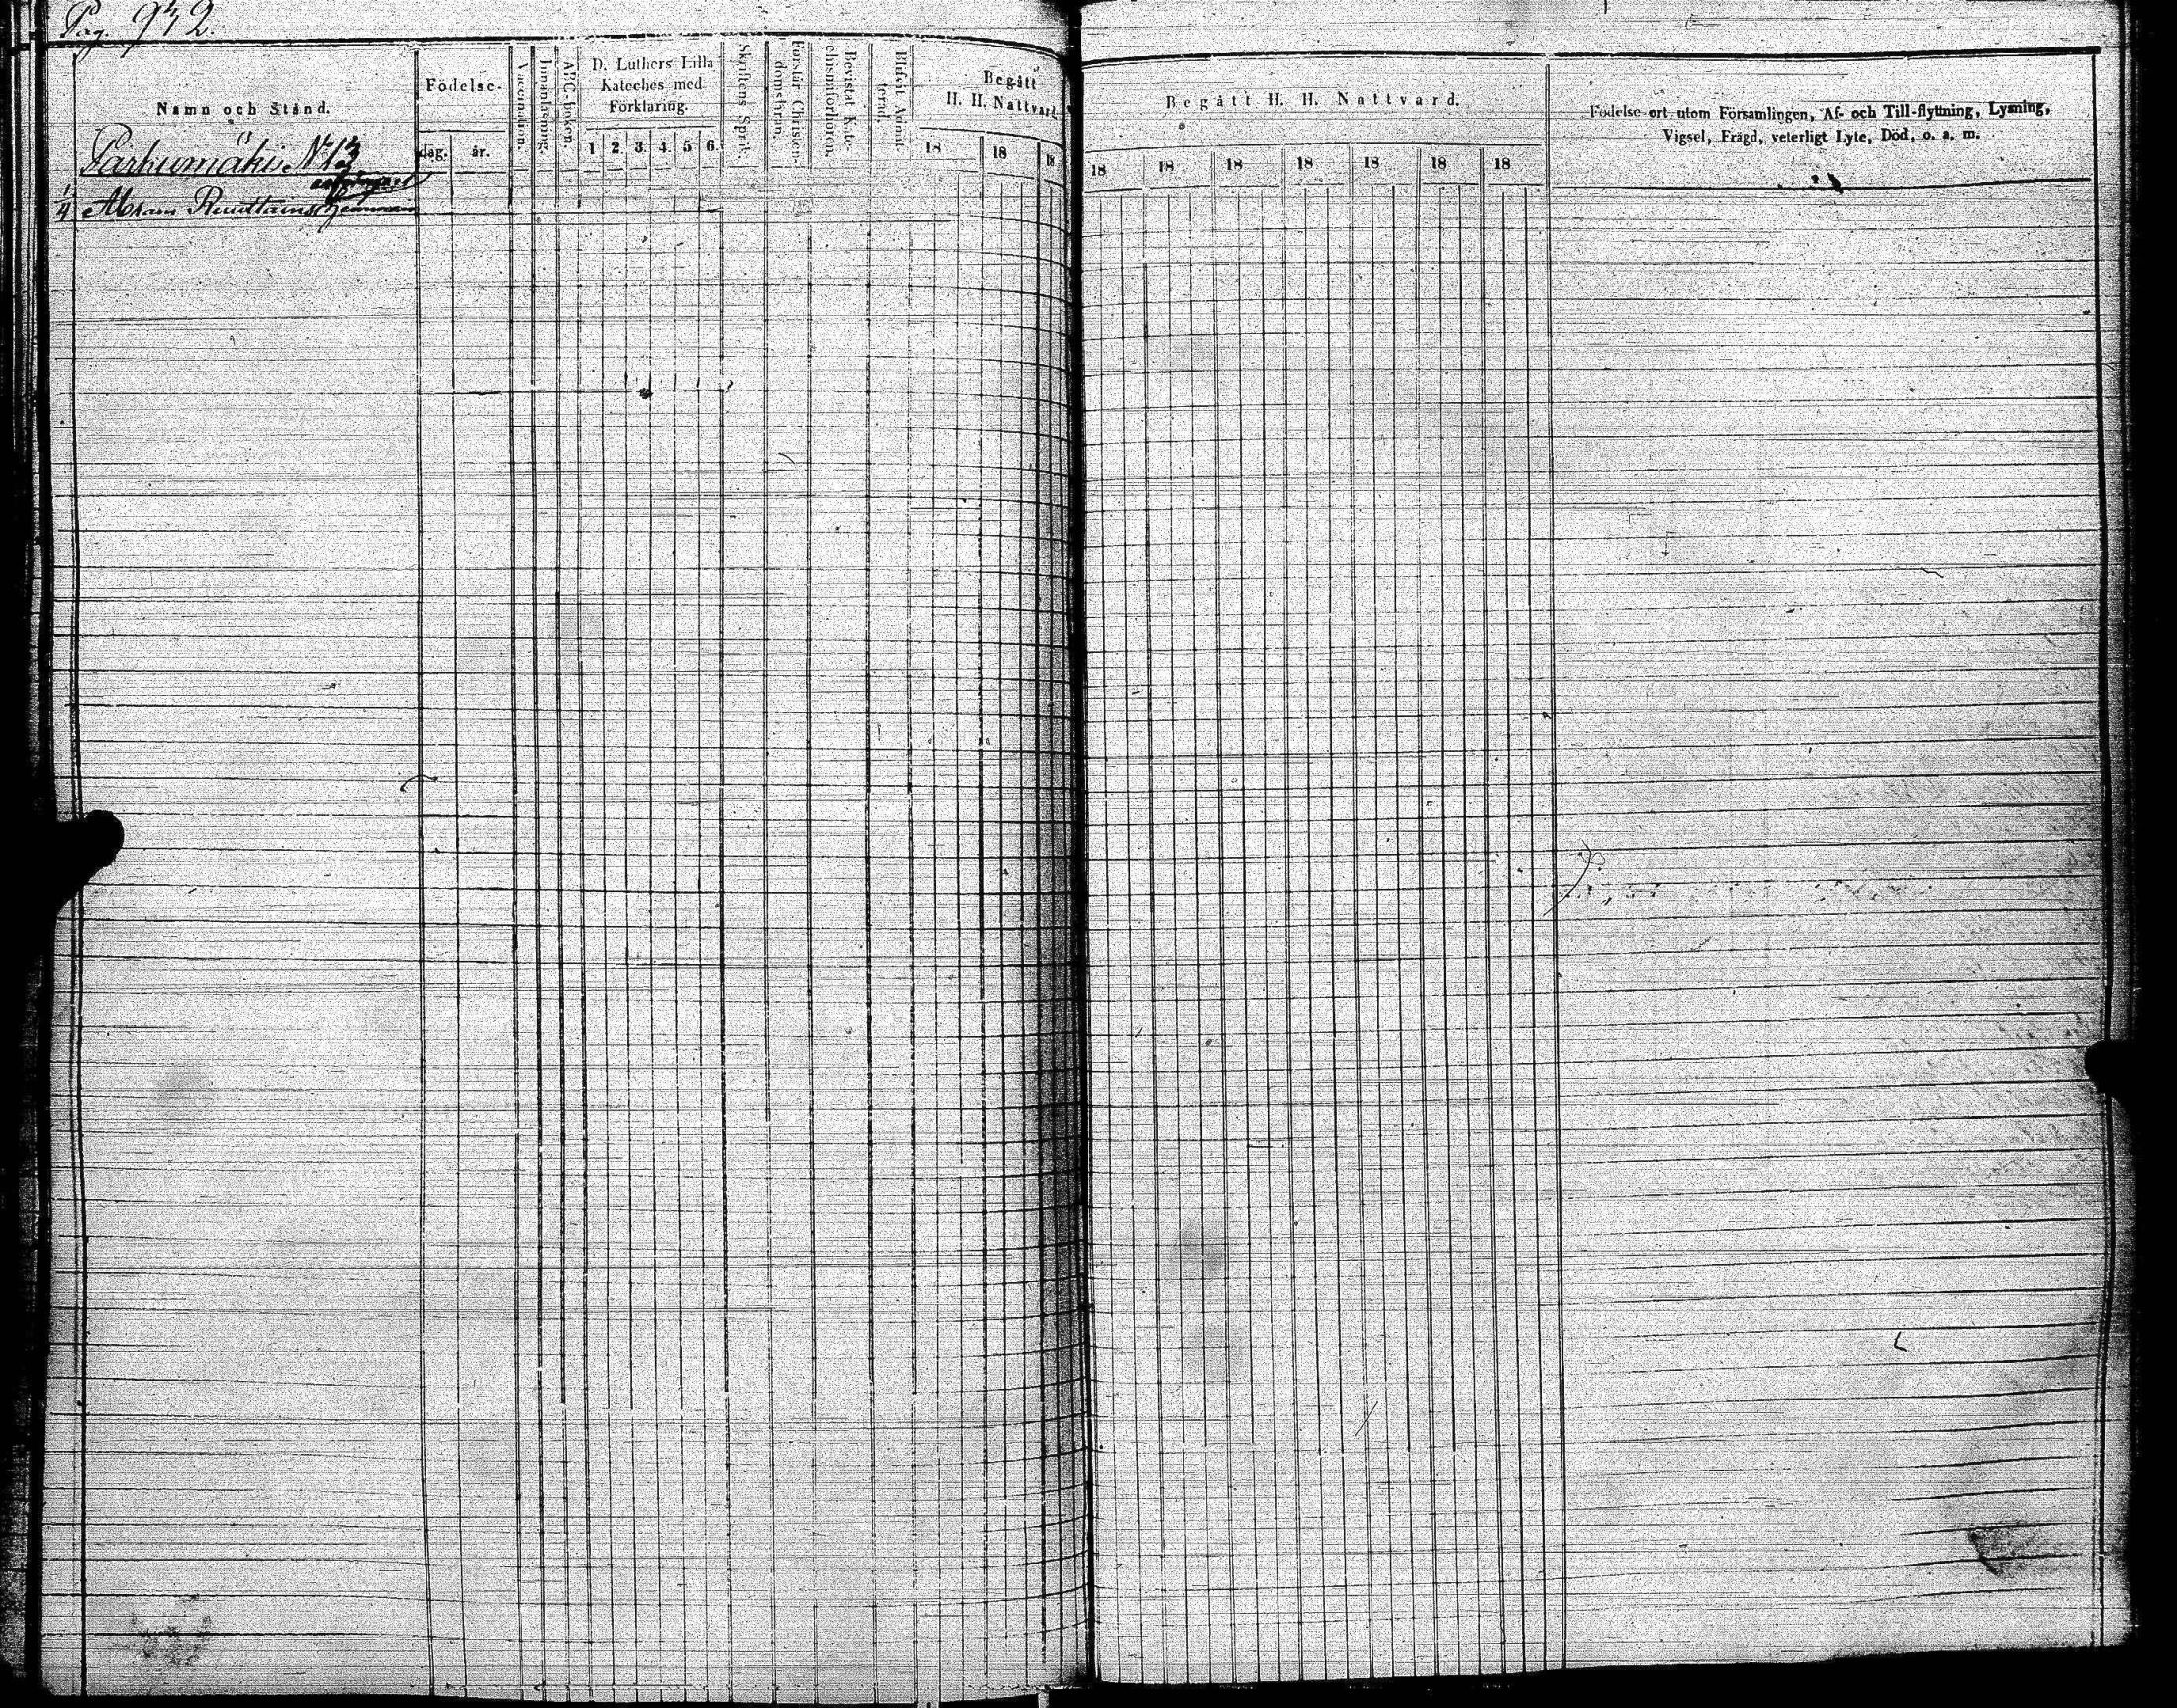 Pag. 932.
Namn och Stånd.
Födelse-
dag. år.
Vaccination.
Innanläsning.
ABC-boken.
D. Luthers Lilla
Kateches med
Förklaring.
1 2 3. 4. 5 6.
Skriftens Språk.
Förstår Christen-
domslären.
Bevistat Kate-
chismiförhören.
Blifvit Admit-
terad.
Begått
H. H. Nattvard.
18 18 18
Begått H. H. Nattvard.
18 18 18 18 18 18 18
Födelse-ort utom Församlingen, Af- och Till-flyttning, Lysning,
Vigsel, Frägd, veterligt Lyte, Död, o. a. m.
Parhumäki N 13
1/4 Abram